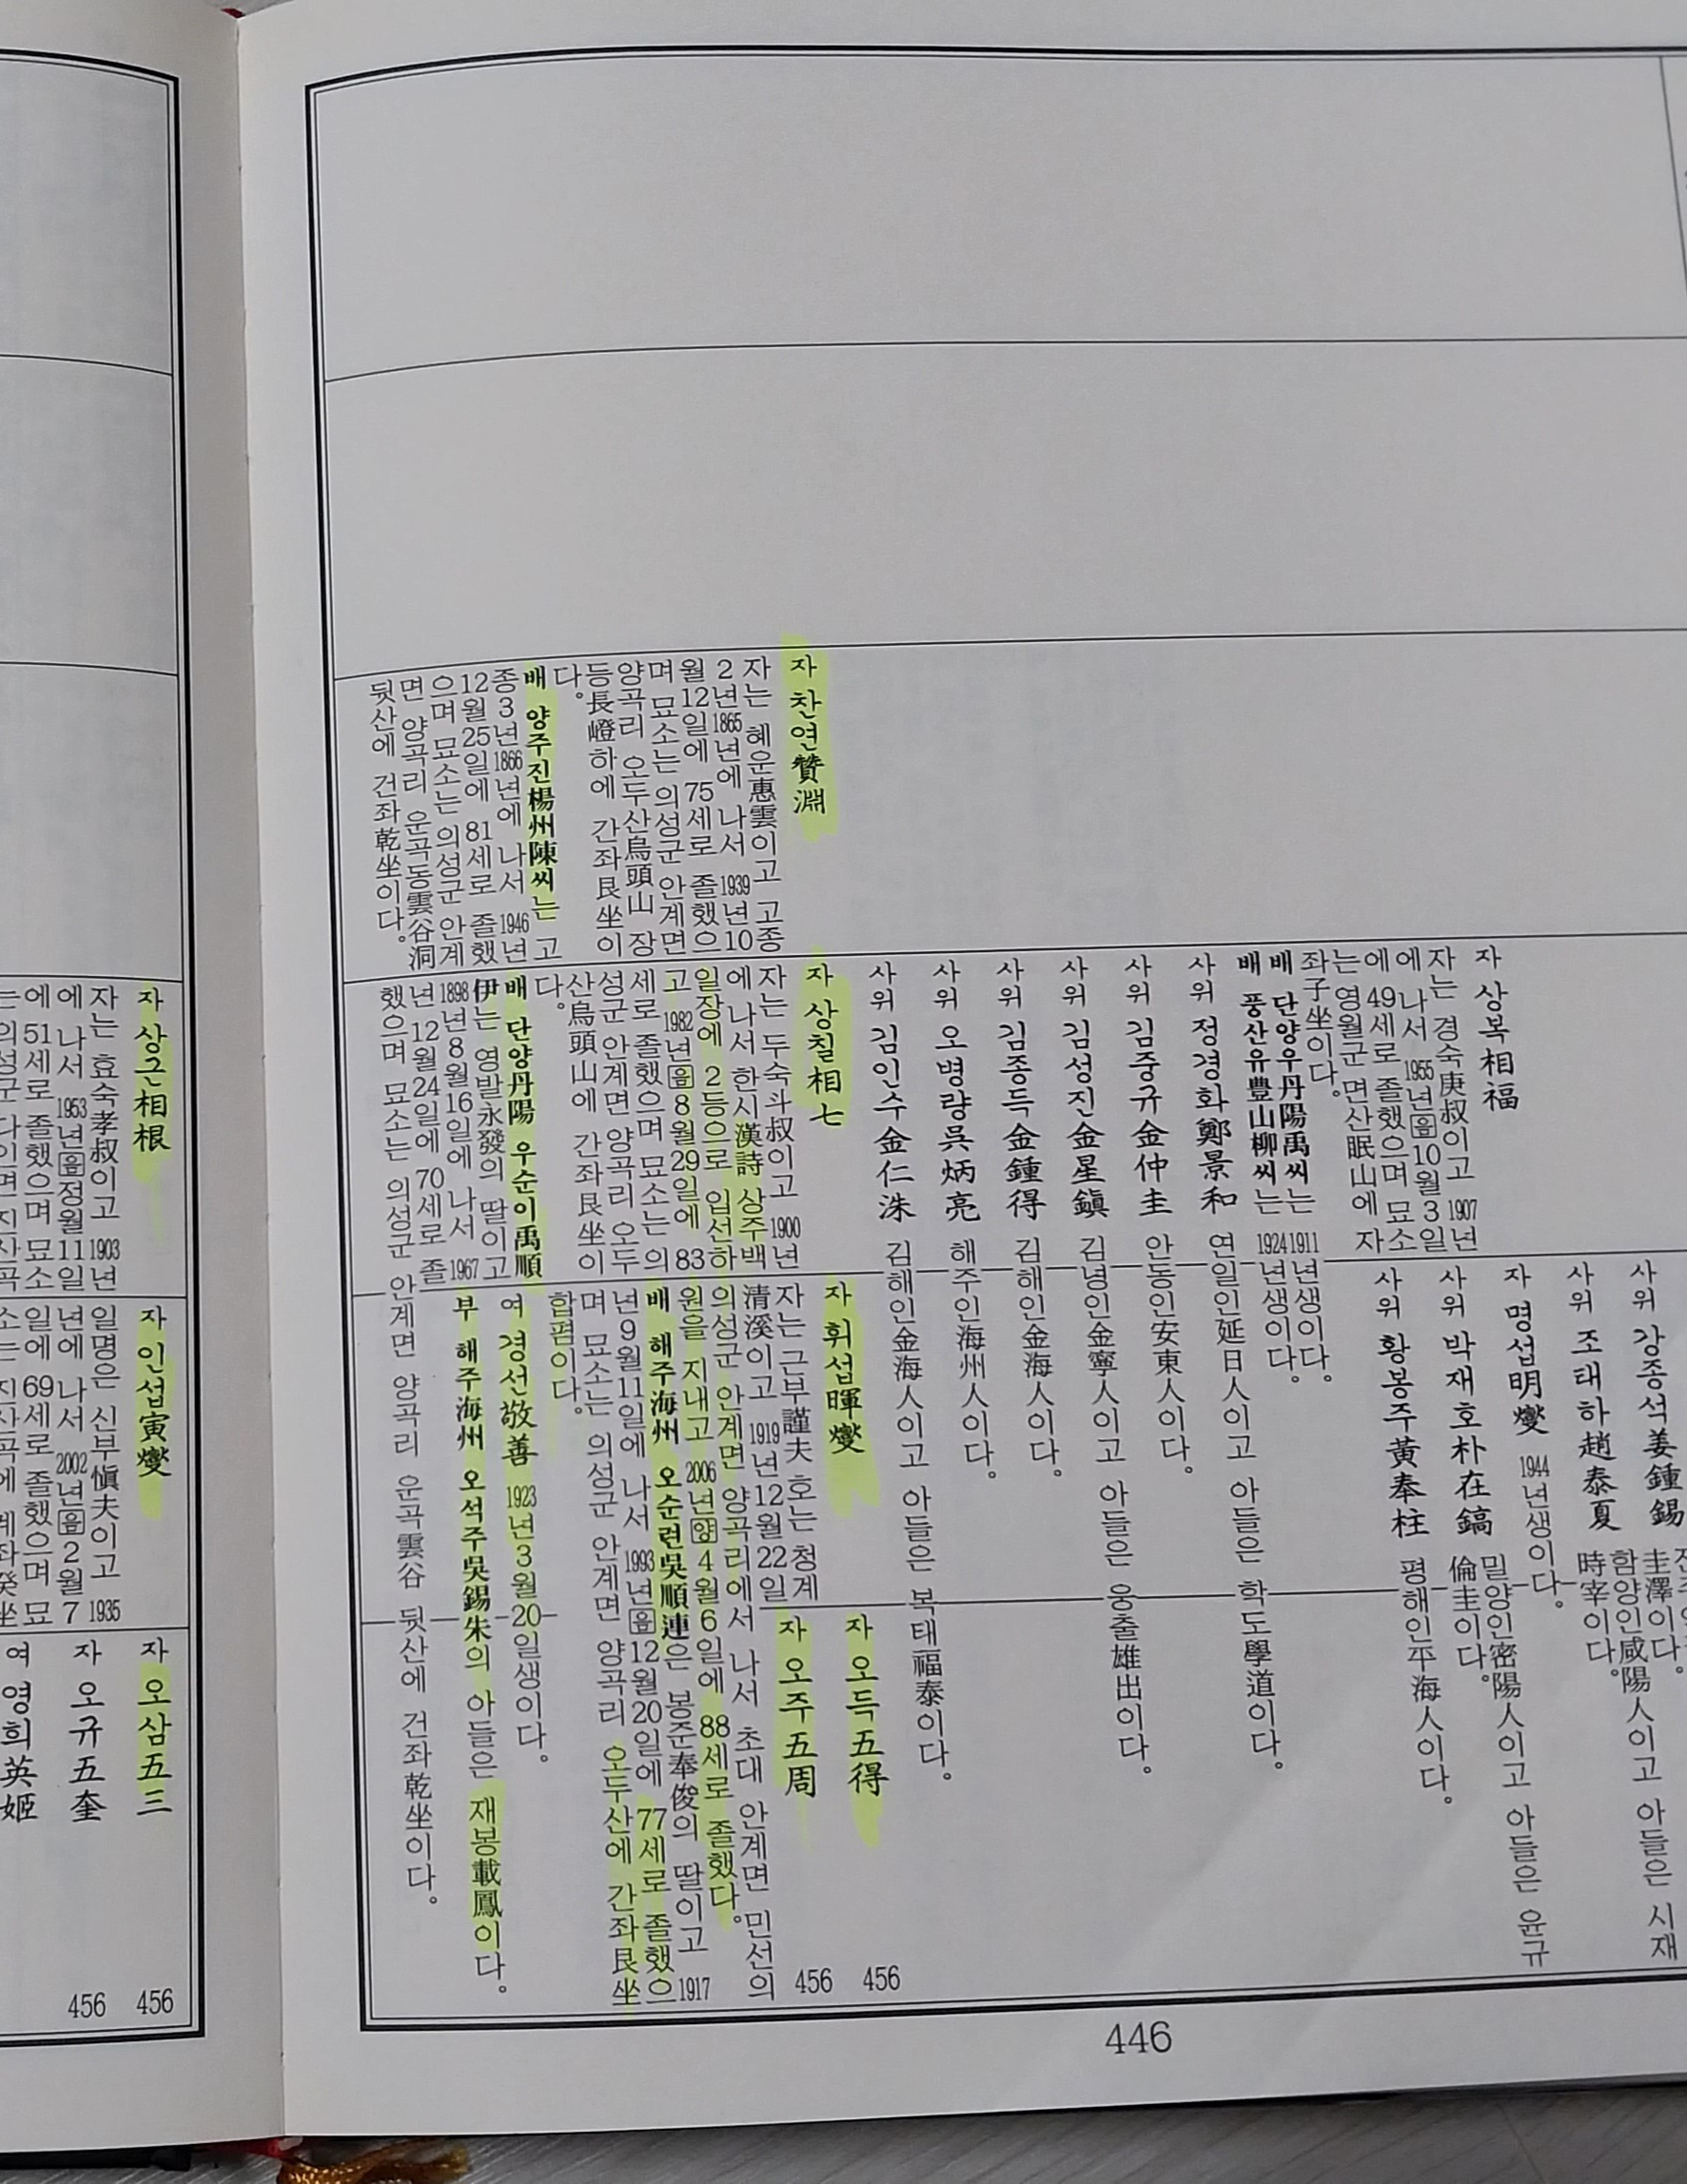 자 강종석姜鍾錫
圭澤이다.
사위 조태하趙泰夏 함양인咸陽人이고 아들은 시재
時宰이다.
자 명섭明燮 1944년생이다.
사위 박재호朴在鎬 밀양인密陽人이고 아들은 윤규
倫圭이다.
사위 황봉주黃奉柱 평해인平海人이다.
자 상복相福
자는 경숙庚叔이고 1907년
에 나서 1955년음10월3일
에 49세로 졸했으며 묘소
는 영월군 면산眠山에 자
좌子坐이다.
배 단양우丹陽禹씨는 1911년생이다.
배 풍산유豊山柳씨는 1924년생이다.
사위 정경화鄭景和 연일인延日人이고 아들은 학도學道이다.
사위 김중규金仲圭 안동인安東人이다.
사위 김성진金星鎭 김녕인金寧人이고 아들은 웅출雄出이다.
사위 김종득金鍾得 김해인金海人이다.
사위 오병량吳炳亮 해주인海州人이다.
사위 김인수金仁洙 김해인金海人이고 아들은 복태福泰이다.
자 찬연贊淵
자는 혜운惠雲이고 고종
2년1865년에 나서 1939년10
월12일에 75세로 졸했으
며 묘소는 의성군 안계면
양곡리 오두산烏頭山 장
등長嶝하에 간좌艮坐이
다.
배 양주진楊州陳씨는 고
종3년1866년에 나서 1946년
12월25일에 81세로 졸했
으며 묘소는 의성군 안계
면 양곡리 운곡동雲谷洞
뒷산에 건좌乾坐이다.
자 상칠相七
자는 두숙斗叔이고 1900년
에 나서 한시漢詩 상주백
일장에 2등으로 입선하
고 1982년음8월29일에 83
세로 졸했으며 묘소는 의
성군 안계면 양곡리 오두
산烏頭山에 간좌艮坐이
다.
배 단양丹陽 우순이禹順
伊는 영발永發의 딸이고
1898년8월16일에 나서 1967
년12월24일에 70세로 졸
했으며 묘소는 의성군 안계면 양곡리 운곡雲谷 뒷산에 건좌乾坐이다.
자 휘섭暉燮
자는 근부謹夫 호는 청계
清溪이고 1919년12월22일
의성군 안계면 양곡리에서 나서 초대 안계면 민선의
원을 지내고 2006년양4월6일에 88세로 졸했다.
배 해주海州 오순련吳順連은 봉준奉俊의 딸이고 1917
년9월11일에 나서 1993년음12월20일에 77세로 졸했으
며 묘소는 의성군 안계면 양곡리 오두산에 간좌艮坐
합폄이다.
여 경선敬善 1923년3월20일생이다.
부 해주海州 오석주吳錫朱의 아들은 재봉載鳳이다.
자 오득五得 456
자 오주五周 456
446
자 상근相根
자는 효숙孝叔이고 1903년
에 나서 1953년음정월11일
에 51세로 졸했으며 묘소
자 인섭寅燮
일명은 신부愼夫이고 1935
년에 나서 2002년음2월7
일에 69세로 졸했으며 묘
자 오삼五三 456
자 오규五奎 456
여 영희英姬